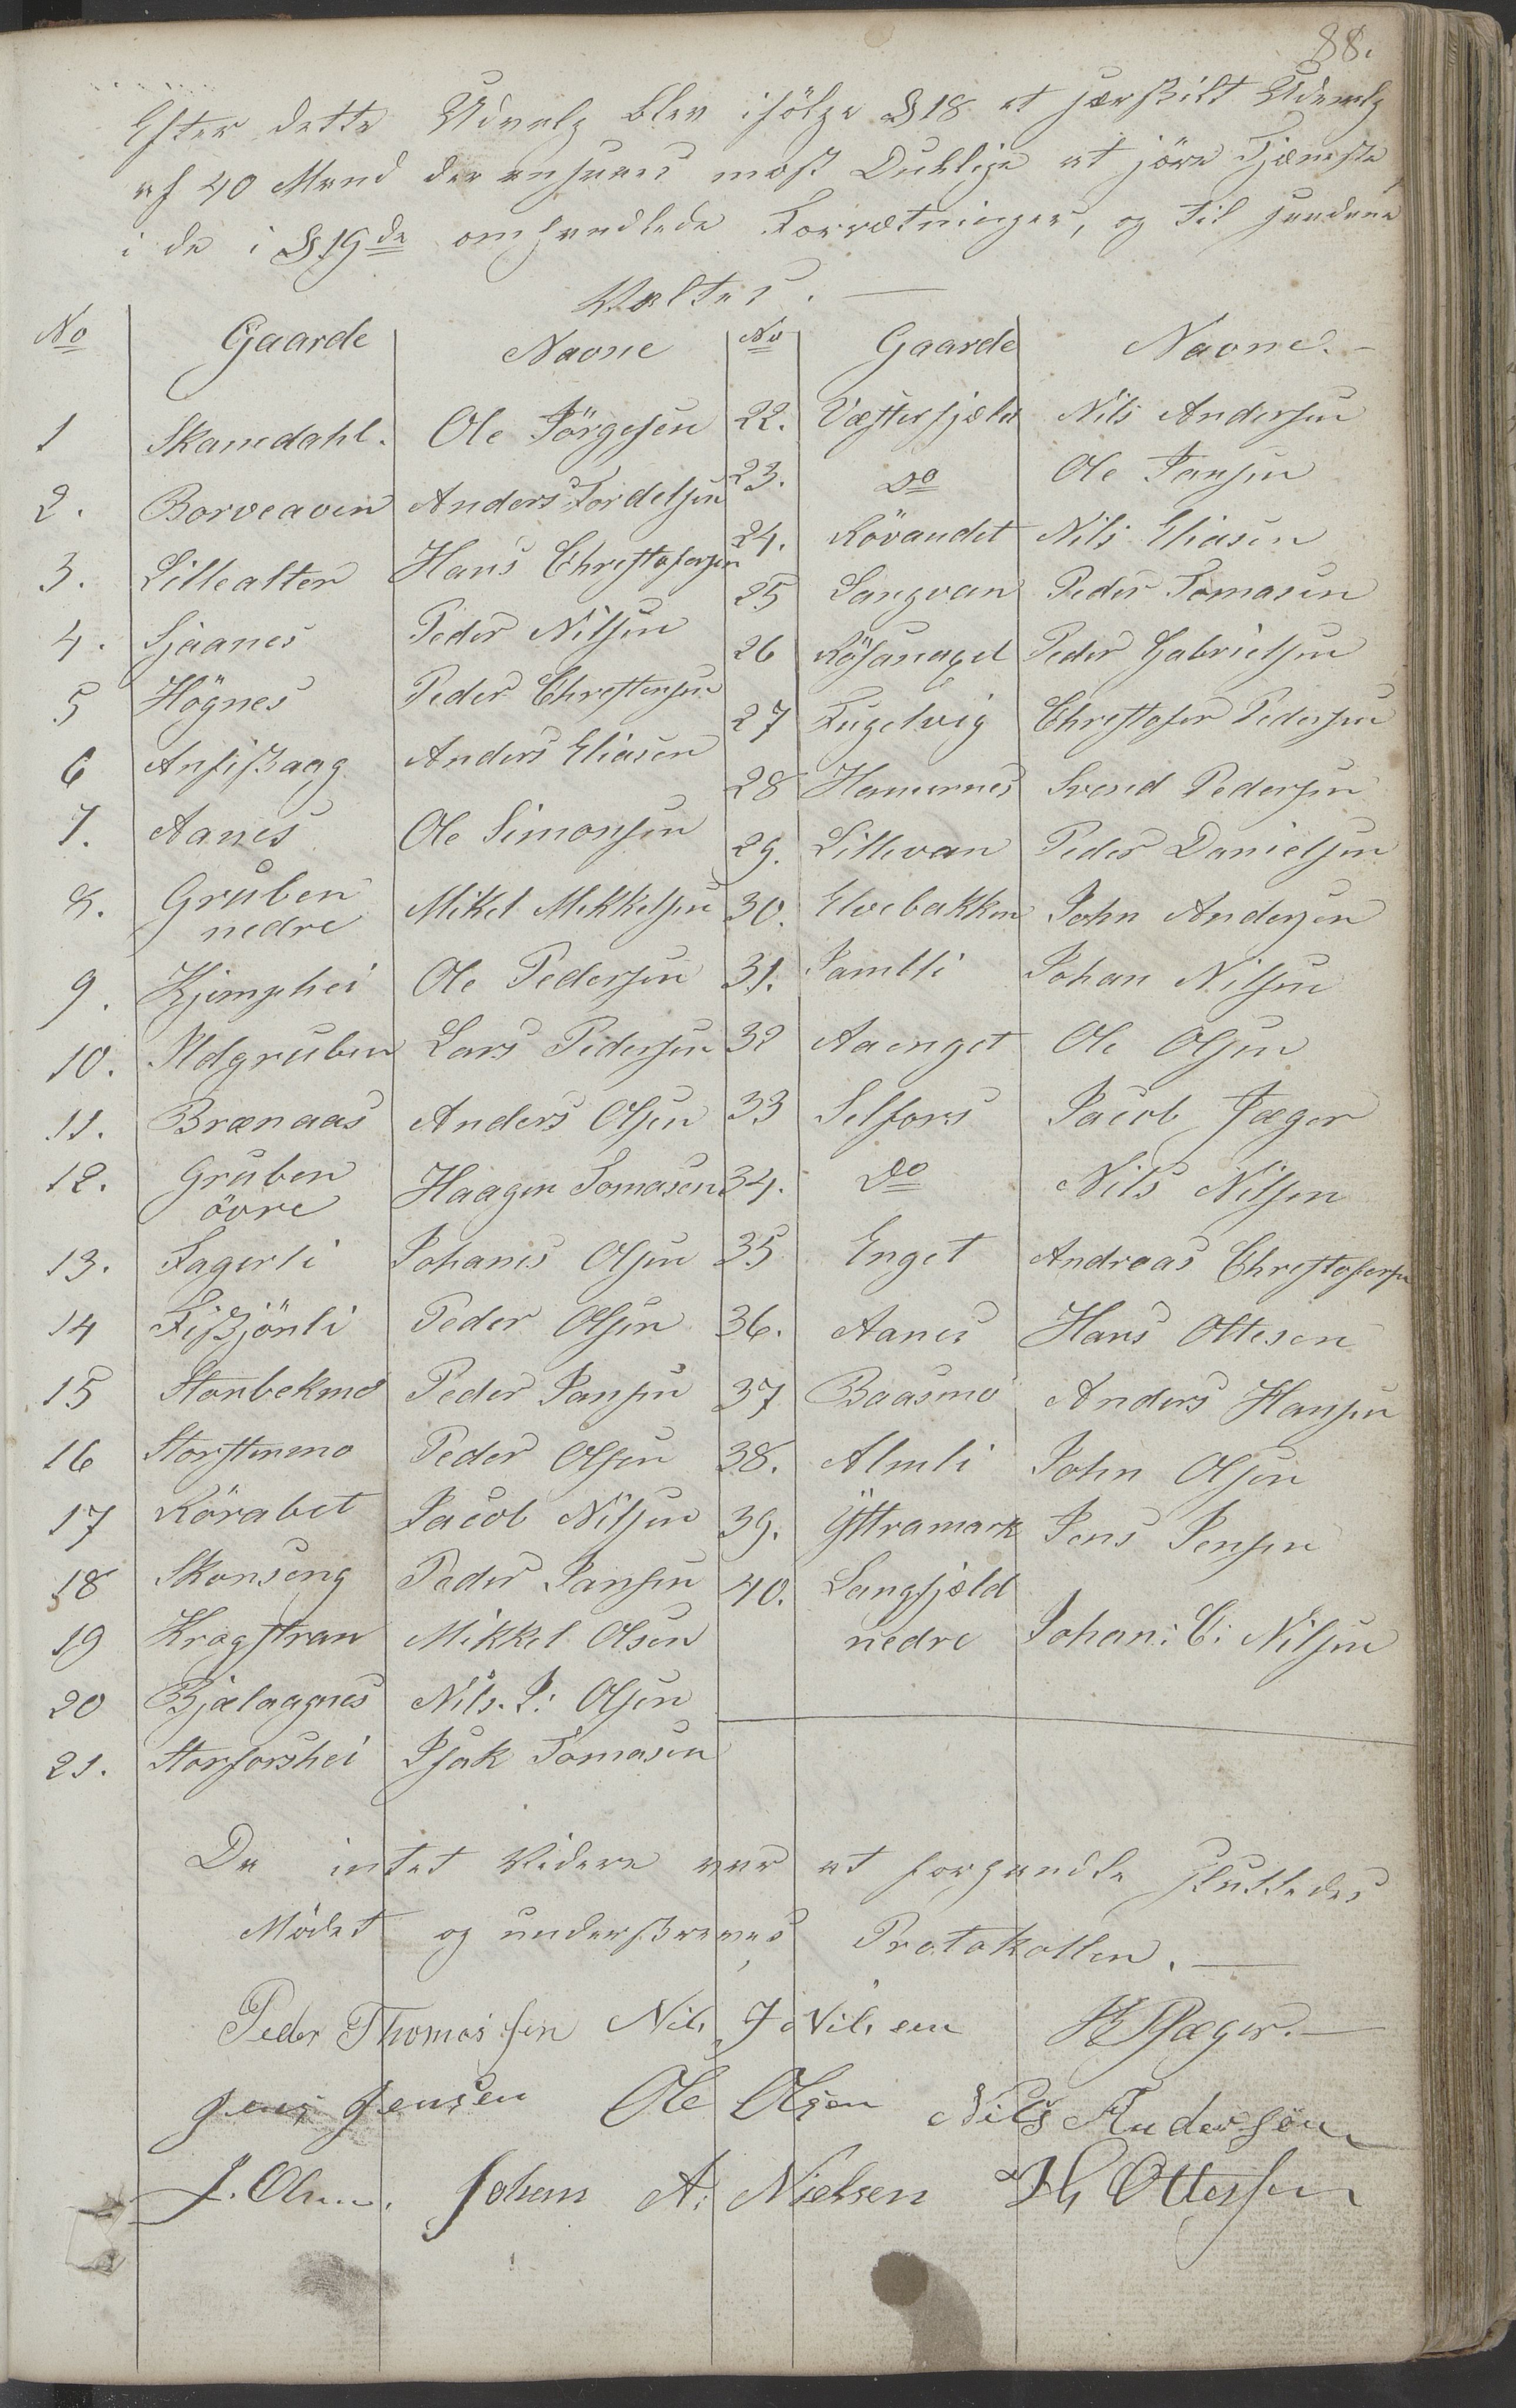 88.
Efter dette Udvalg blev ifölge § 18 et særskilt Udvalg
af 40 Mænd der ansees mest Duelige at jöre Tjeneste
i de i § 19de omhandlede Forrætninger, og til saadanne
Valtes. —
No Gaarde Navne No Gaarde Navne. —
1 Skamdahl. Ole Jörgesen 22. Væsterfjeld Nils Andersen
2. Borveaven Anders Tordelsen 23. Do Ole Jansen
3. Lillealter Hans Christofersen 24. Rövandet Nils Eliasen
4. Sjaanes Peder Nilsen 25 Langvan Peder Tomasen
5 Högnes Peder Christensen 26 Röfsanaget Peder Gabrielsen
6 Anfiskaag Anders Eliasen 27 Fugelvig Christofer Pedersen
7. Aanes Ole Simonsen 28 Hamernes Svend Pedersen
8. Gruben nedre Mikel Mikkelsen 29. Lillevan Peder Danielsen
9. Kjemphei Ole Pedersen 30. Elvebakken John Andersen
10. Ildgruben Lars Pedersen 31. Jamtli Johan Nilsen
11. Brænaas Anders Olsen 32 Aaenget Ole Olsen
12. Gruben övre Haagen Tomasen 33 Selfors Jacob Jæger
13. Fagerli Johanes Olsen 34. Do Nils Nilsen
14 Fiskjönli Peder Olsen 35 Enget Andreas Christofersen
15 Storbekmo Peder Jansen 36. Aanes Hans Ottesen
16 Storstenmo Peder Olsen 37 Baasmo Anders Hansen
17 Körabet Jacob Nilsen 38. Almli John Olsen
18 Skonseng Peder Jansen 39. Yttramark Jens Jensen
19 Kragstran Mikkel Olsen 40. Langfjeld nedre Johan: C: Nilsen
20 Bjælaagnes Nils. J: Olsen
21. Storforshei Isak Tomasen
Da intet Videre var at forhandle sluttedes
Mödet og underskreves Protokollen. —
Peder Thomassen Nils J Nilsen Jæger. —
Jens Jensen Ole Olsen Nils Andersen
J. Olsen. Johan A: Nielsen H Ottessen